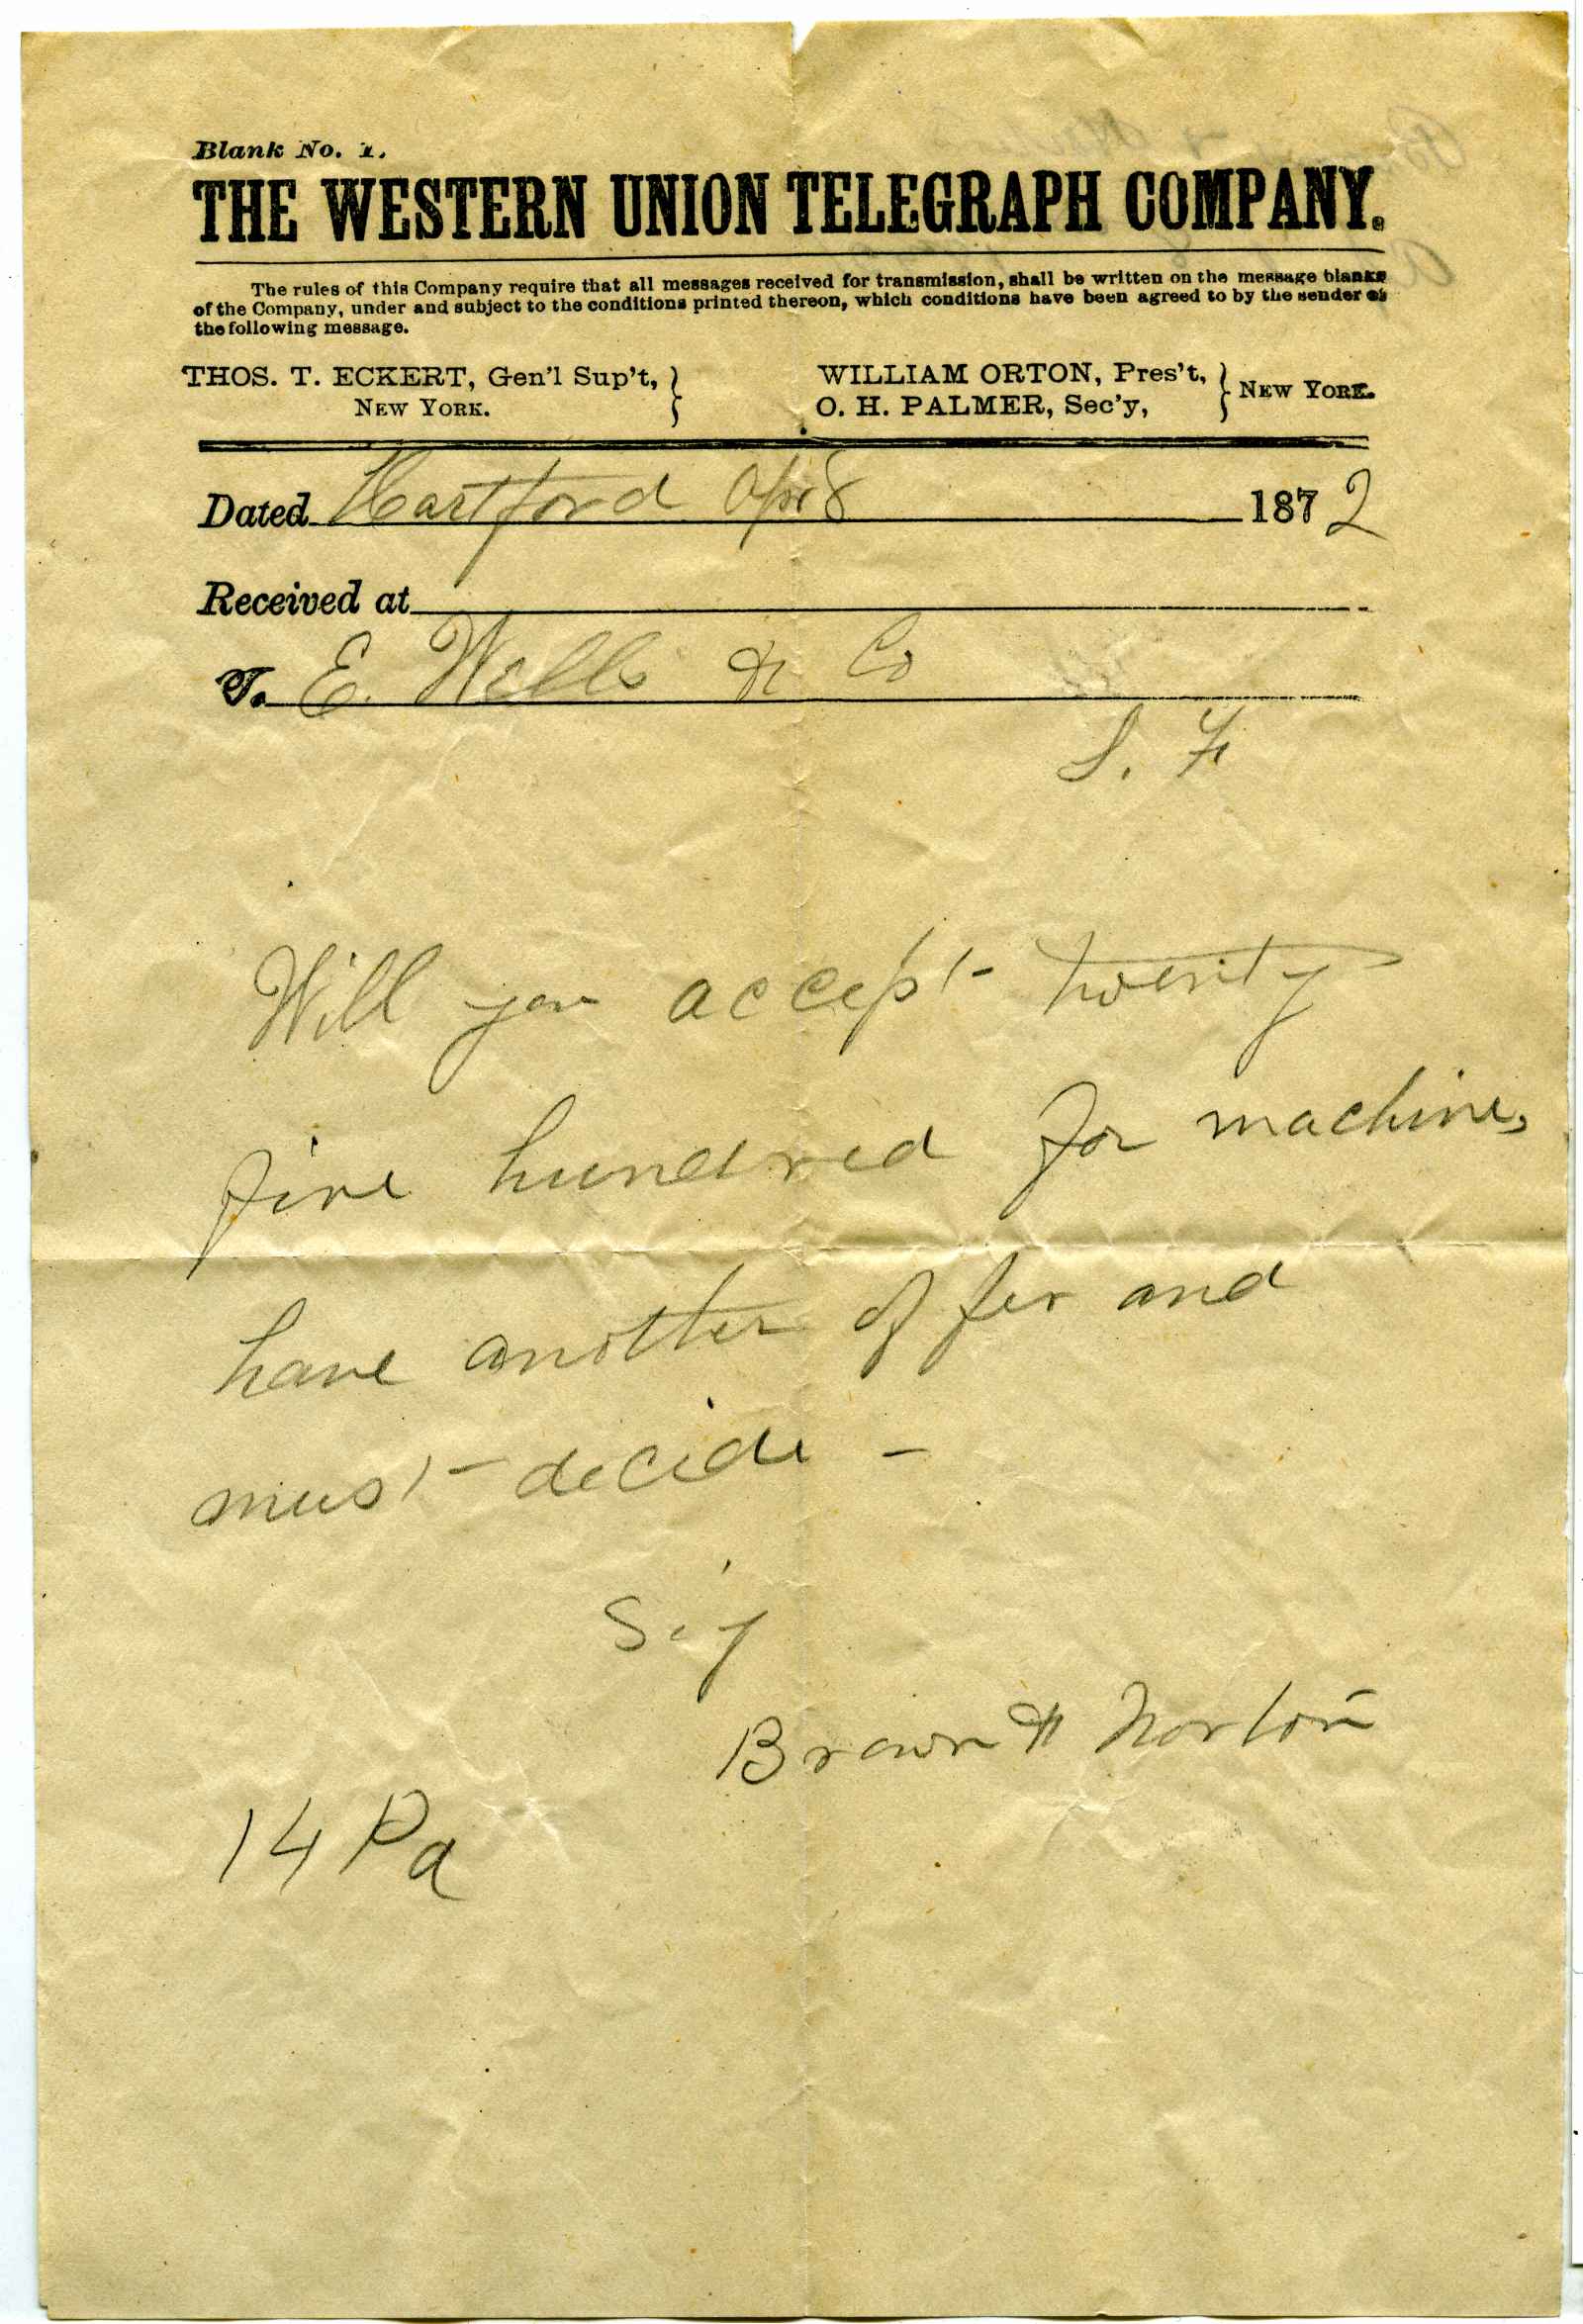 Blank No. 1.
THE WESTERN UNION TELEGRAPH COMPANY.
The rules of this Company require that all messages received for transmission, shall be written on the message blanks
of the Company, under and subject to the conditions printed thereon, which conditions have been agreed to by the sender of
the following message.
THOS. T. ECKERT, Gen'l Sup't,
NEW YORK.
WILLIAM ORTON, Pres't,
O. H. PALMER, Sec'y,
NEW YORK.
Dated Hartford Apr 8 1872
Received at
To E. Wells & Co
S. F
Will you accept twenty
five hundred for machine,
have another offer and
must decide -
Sig
Brown & Norton
14 Pa